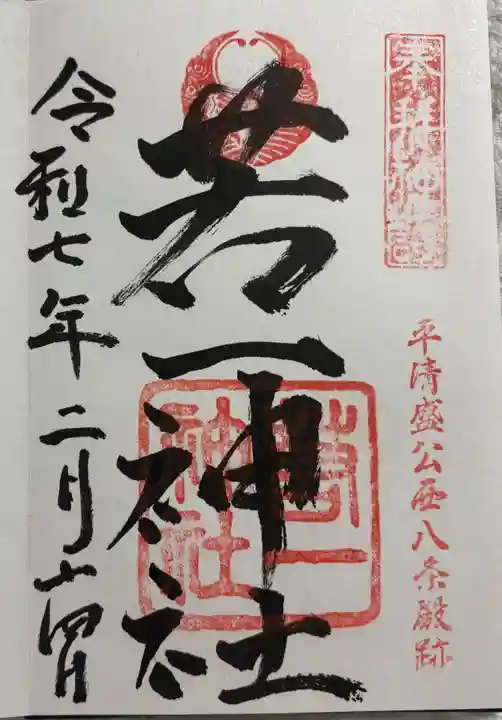 奉拝
平清盛公西八条殿跡
若一神社
若一神社
令和七年二月十四日